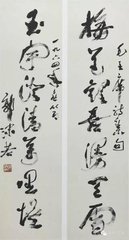 毛主席詩集句
梅花歡喜漫天雪
玉宇澄清萬里埃
一九六四年
郭沫若